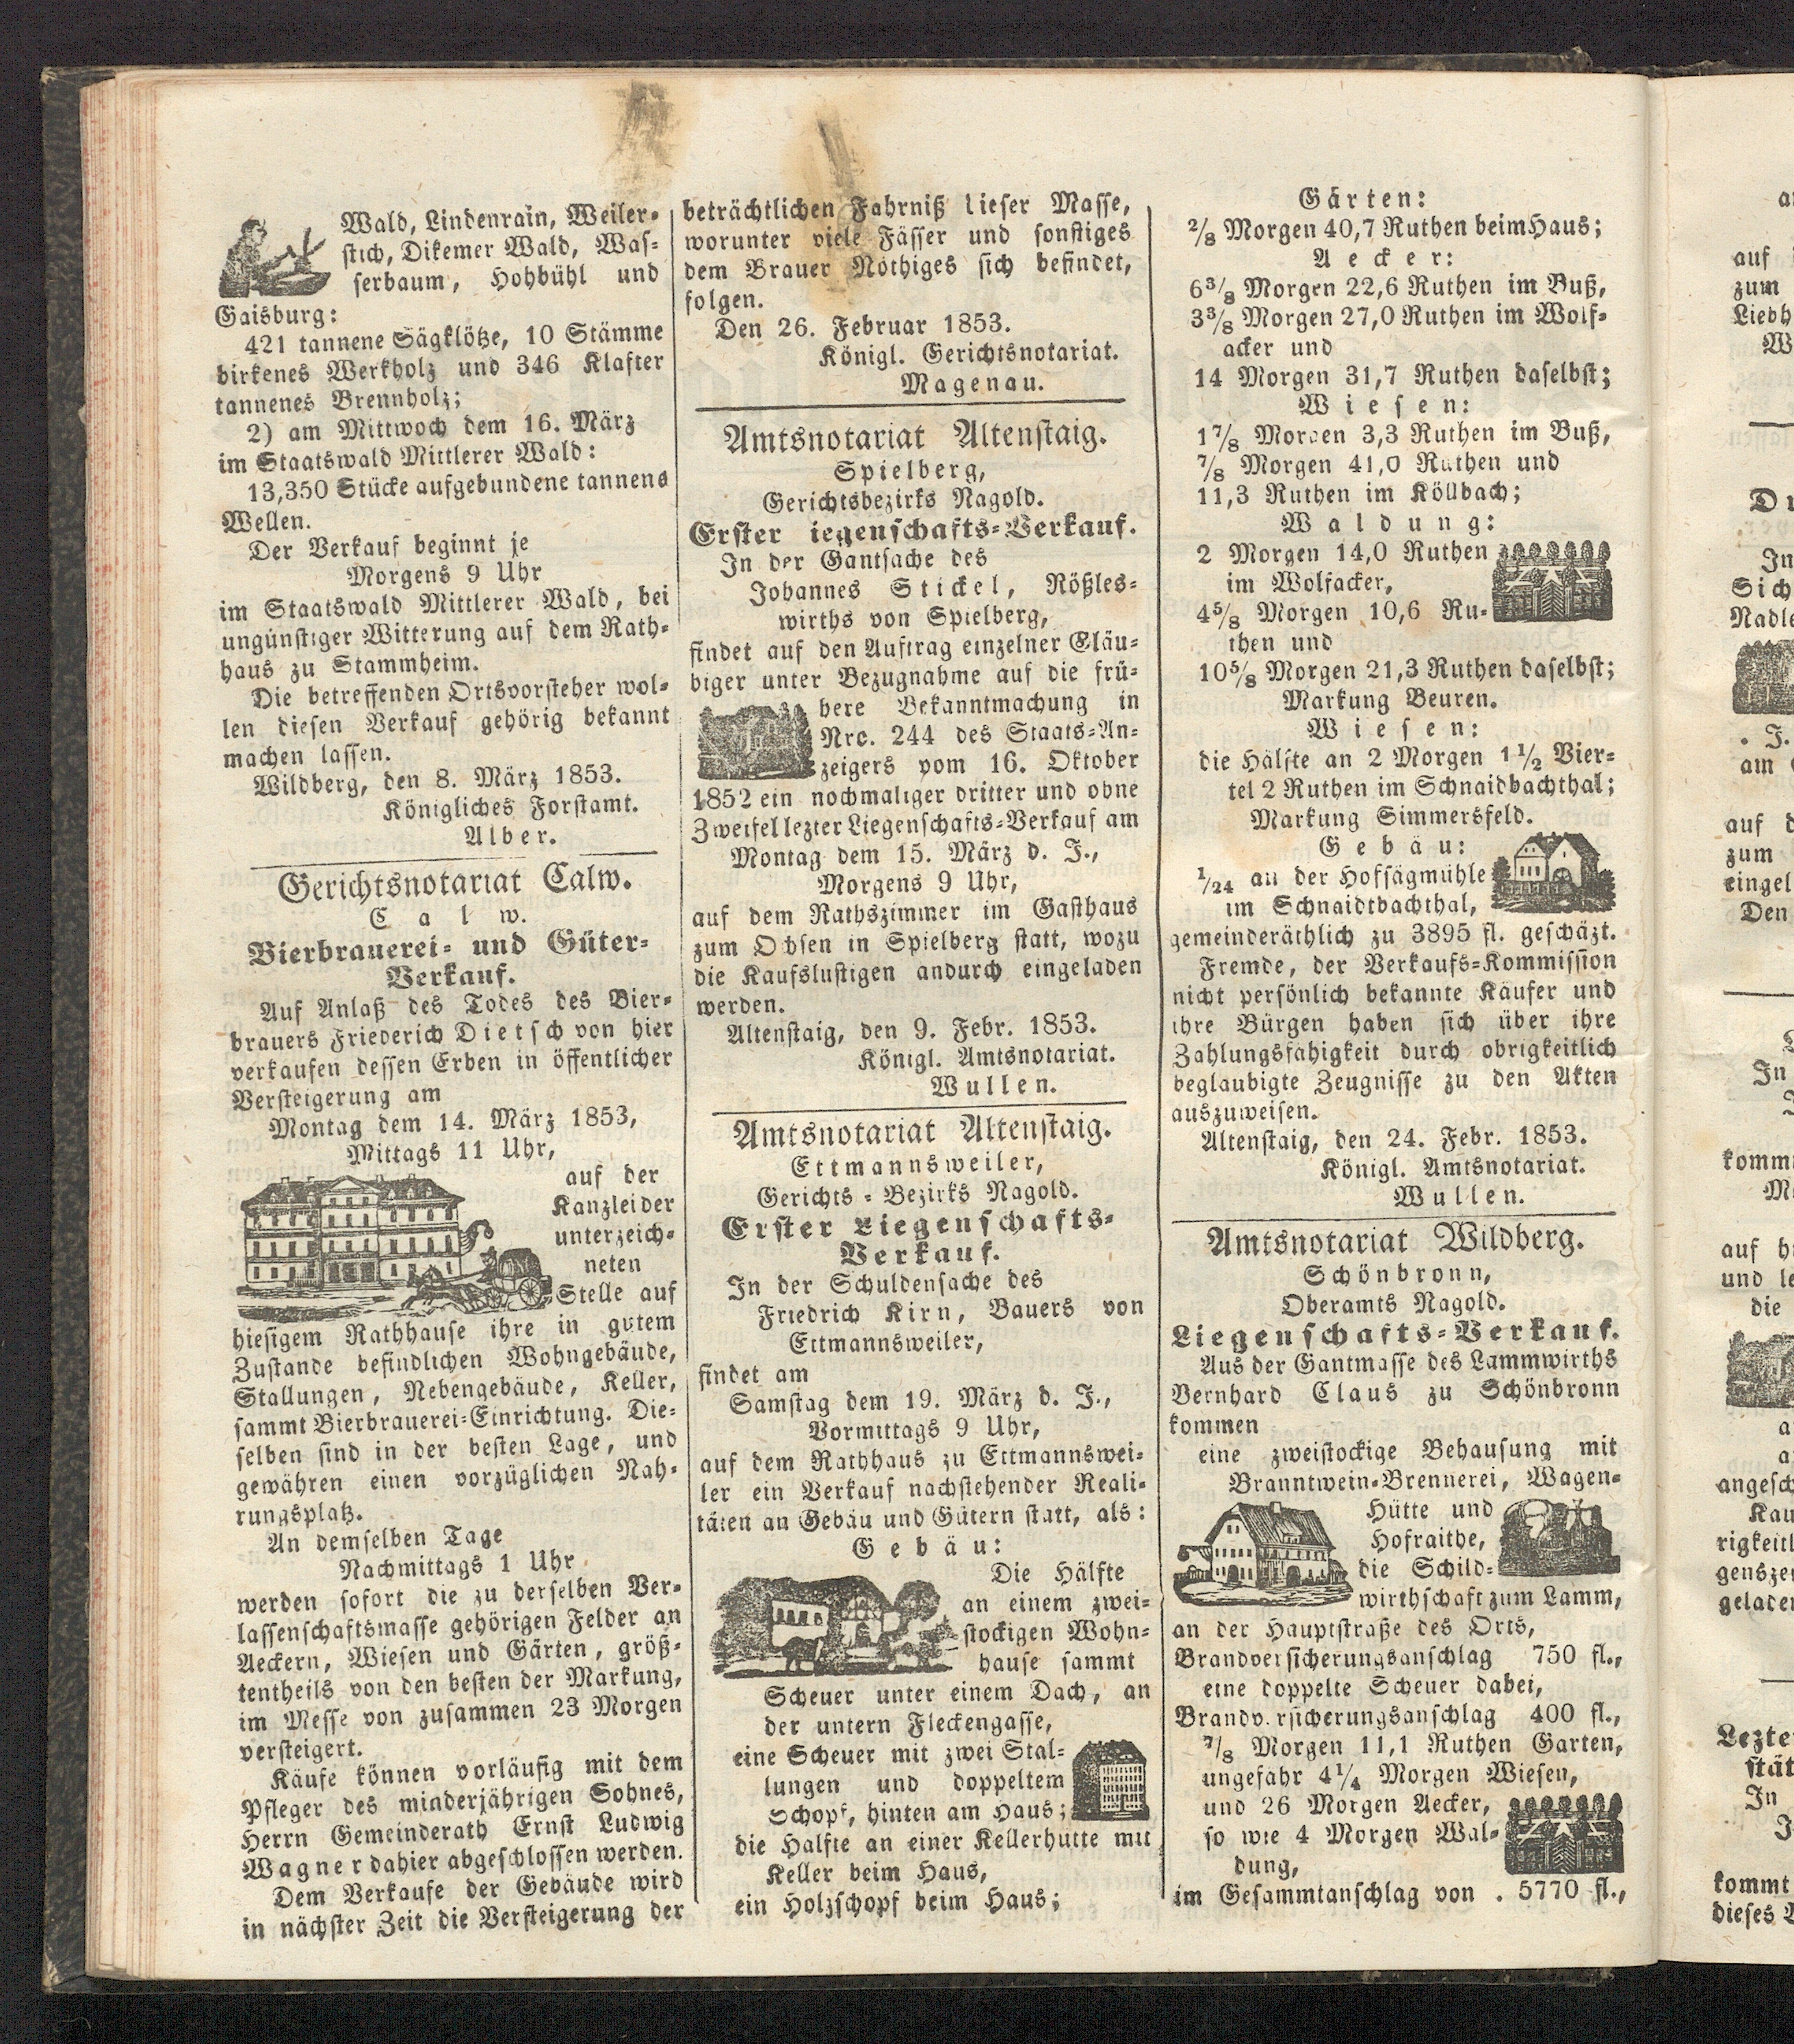 Wald, Lindenrain, Weiler-
stich, Dikemer Wald, Was-
serbaum, Hohbühl und
Gaisburg:
421 tannene Sägklötze, 10 Stämme
birkenes Werkholz und 346 Klafter
tannenes Brennholz;
2) am Mittwoch dem 16. März
im Staatswald Mittlerer Wald:
13,350 Stücke aufgebundene tannene
Wellen.
Der Verkauf beginnt je
Morgens 9 Uhr
im Staatswald Mittlerer Wald, bei
ungünstiger Witterung auf dem Rath-
haus zu Stammheim.
Die betreffenden Ortsvorsteher wol-
len diesen Verkauf gehörig bekannt
machen lassen.
Wildberg, den 8. März 1853.
Königliches Forstamt.
Alber.
Gerichtsnotariat Calw.
Calw.
Bierbrauerei- und Güter-
Verkauf.
Auf Anlaß des Todes des Bier-
brauers Friederich Dietsch von hier
verkaufen dessen Erben in öffentlicher
Versteigerung am
Montag dem 14. März 1853,
Mittags 11 Uhr,
auf der
Kanzlei der
unterzeich-
neten
Stelle auf
hiesigem Rathhause ihre in gutem
Zustande befindlichen Wohngebäude,
Stallungen, Nebengebäude, Keller,
sammt Bierbrauerei-Einrichtung. Die-
selben sind in der besten Lage, und
gewähren einen vorzüglichen Nah-
rungsplatz.
An demselben Tage
Nachmittags 1 Uhr
werden sofort die zu derselben Ver-
lassenschaftsmasse gehörigen Felder an
Aeckern, Wiesen und Gärten, größ-
tentheils von den besten der Markung,
im Messe von zusammen 23 Morgen
versteigert.
Käufe können vorläufig mit dem
Pfleger des minderjährigen Sohnes,
Herrn Gemeinderath Ernst Ludwig
Wagner dahier abgeschlossen werden.
Dem Verkaufe der Gebäude wird
in nächster Zeit die Versteigerung der
beträchtlichen Fahrniß dieser Masse,
worunter viele Fässer und sonstiges
dem Brauer Nöthiges sich befindet,
folgen.
Den 26. Februar 1853.
Königl. Gerichtsnotariat.
Magenau.
Amtsnotariat Altenstaig.
Spielberg,
Gerichtsbezirks Nagold.
Erster iegenschafts-Verkauf.
In der Gantsache des
Johannes Stickel, Rößles-
wirths von Spielberg,
findet auf den Auftrag einzelner Gläu-
biger unter Bezugnahme auf die frü-
here Bekanntmachung in
Nro. 244 des Staats-An-
zeigers vom 16. Oktober
1852 ein nochmaliger dritter und ohne
Zweifel lezter Liegenschafts-Verkauf am
Montag dem 15. März d. J.,
Morgens 9 Uhr,
auf dem Rathszimmer im Gasthaus
zum Ochsen in Spielberg statt, wozu
die Kaufslustigen andurch eingeladen
werden.
Altenstaig, den 9. Febr. 1853.
Königl. Amtsnotariat.
Wullen.
Amtsnotariat Altenstaig.
Ettmannsweiler,
Gerichts-Bezirks Nagold.
Erster Liegenschafts-
Verkauf.
In der Schuldensache des
Friedrich Kirn, Bauers von
Ettmannsweiler,
findet am
Samstag dem 19. März d. J.,
Vormittags 9 Uhr,
auf dem Rathhaus zu Ettmannswei-
ler ein Verkauf nachstehender Reali-
täten an Gebäu und Gütern statt, als:
Gebäu:
Die Hälfte
an einem zwei-
stockigen Wohn-
hause sammt
Scheuer unter einem Dach, an
der untern Fleckengasse,
eine Scheuer mit zwei Stal-
lungen und doppeltem
Schopf, hinten am Haus;
die Hälfte an einer Kellerhütte mit
Keller beim Haus,
ein Holzschopf beim Haus;
Gärten:
2/8 Morgen 40,7 Ruthen beim Haus;
Aecker:
6 3/8 Morgen 22,6 Ruthen im Buß,
3 3/8 Morgen 27,0 Ruthen im Wolf-
acker und
14 Morgen 31,7 Ruthen daselbst;
Wiesen:
1 7/8 Morgen 3,3 Ruthen im Buß,
7/8 Morgen 41,0 Ruthen und
11,3 Ruthen im Köllbach;
Waldung:
2 Morgen 14,0 Ruthen
im Wolfacker,
4 5/8 Morgen 10,6 Ru-
then und
10 5/8 Morgen 21,3 Ruthen daselbst;
Markung Beuren.
Wiesen:
die Hälfte an 2 Morgen 1 1/2 Vier-
tel 2 Ruthen im Schnaidbachthal;
Markung Simmersfeld.
Gebäu:
1/24 an der Hofsägmühle
im Schnaidtbachthal,
gemeinderäthlich zu 3895 fl. geschäzt.
Fremde, der Verkaufs-Kommission
nicht persönlich bekannte Käufer und
ihre Bürgen haben sich über ihre
Zahlungsfähigkeit durch obrigkeitlich
beglaubigte Zeugnisse zu den Akten
auszuweisen.
Altenstaig, den 24. Febr. 1853.
Königl. Amtsnotariat.
Wullen.
Amtsnotariat Wildberg.
Schönbronn,
Oberamts Nagold.
Liegenschafts-Verkauf.
Aus der Gantmasse des Lammwirths
Bernhard Claus zu Schönbronn
kommen
eine zweistockige Behausung mit
Branntwein-Brennerei, Wagen-
Hütte und
Hofraithe,
die Schild-
wirthschaft zum Lamm,
an der Hauptstraße des Orts,
Brandversicherungsanschlag 750 fl.,
eine doppelte Scheuer dabei,
Brandv.rsicherungsanschlag 400 fl.,
7/8 Morgen 11,1 Ruthen Garten,
ungefähr 4 1/4 Morgen Wiesen,
und 26 Morgen Aecker,
so wie 4 Morgen Wal-
dung,
im Gesammtanschlag von . 5770 fl.,
auf
zum
Liebh
Du
In
Sich
Nadle
. J.
am
auf d
zum
eingel
Den
In
komm
auf h
und le
die
angesch
Kau
rigkeitl
genszei
geladen
Lezte
stät
In
kommt
dieses V